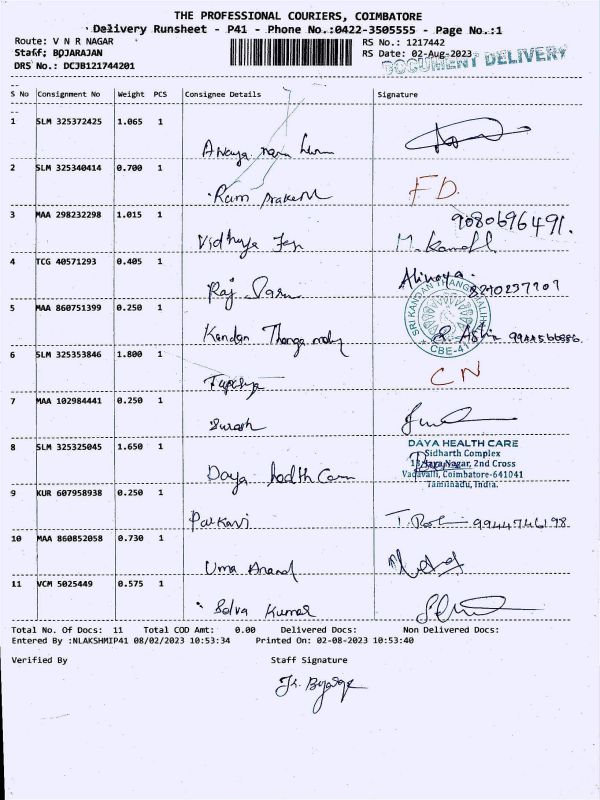 THE PROFESSIONAL COURIERS, COIMBATORE
Delivery Runsheet - P41 - Phone No.:0422-3505555 - Page No.:1
Route: V N R NAGAR
RS No.: 1217442
Staff: BOJARAJAN
RS Date: 02-Aug-2023
DRS No.: DCJB121744201
DOCUMENT DELIVERY
S No Consignment No Weight PCS Consignee Details Signature
1 SLM 325372425 1.065 1
2 SLM 325340414 0.700 1 Ram Prakash FD.
3 MAA 298232298 1.015 1 Vidhya 9080696491.
M. Kamali
4 TCG 40571293 0.405 1 Raj Abinaya.
SRI KANDAN THANGAMALIHAI
CBE-41
5 MAA 860751399 0.250 1 Kandan Thanga maly
6 SLM 325353846 1.800 1 CN
7 MAA 102984441 0.250 1 Suresh
8 SLM 325325045 1.650 1 Daya health Care
DAYA HEALTH CARE
Sidharth Complex
Nagar, 2nd Cross
Vadavalli, Coimbatore-641041
Tamilnadu, India.
9 KUR 607958938 0.250 1 Parkavi 9944746198
10 MAA 860852058 0.730 1 Uma Anand
11 VCM 5025449 0.575 1 Selva Kumar
Total No. Of Docs: 11 Total COD Amt: 0.00 Delivered Docs: Non Delivered Docs:
Entered By :NLAKSHMIP41 08/02/2023 10:53:34 Printed On: 02-08-2023 10:53:40
Verified By Staff Signature